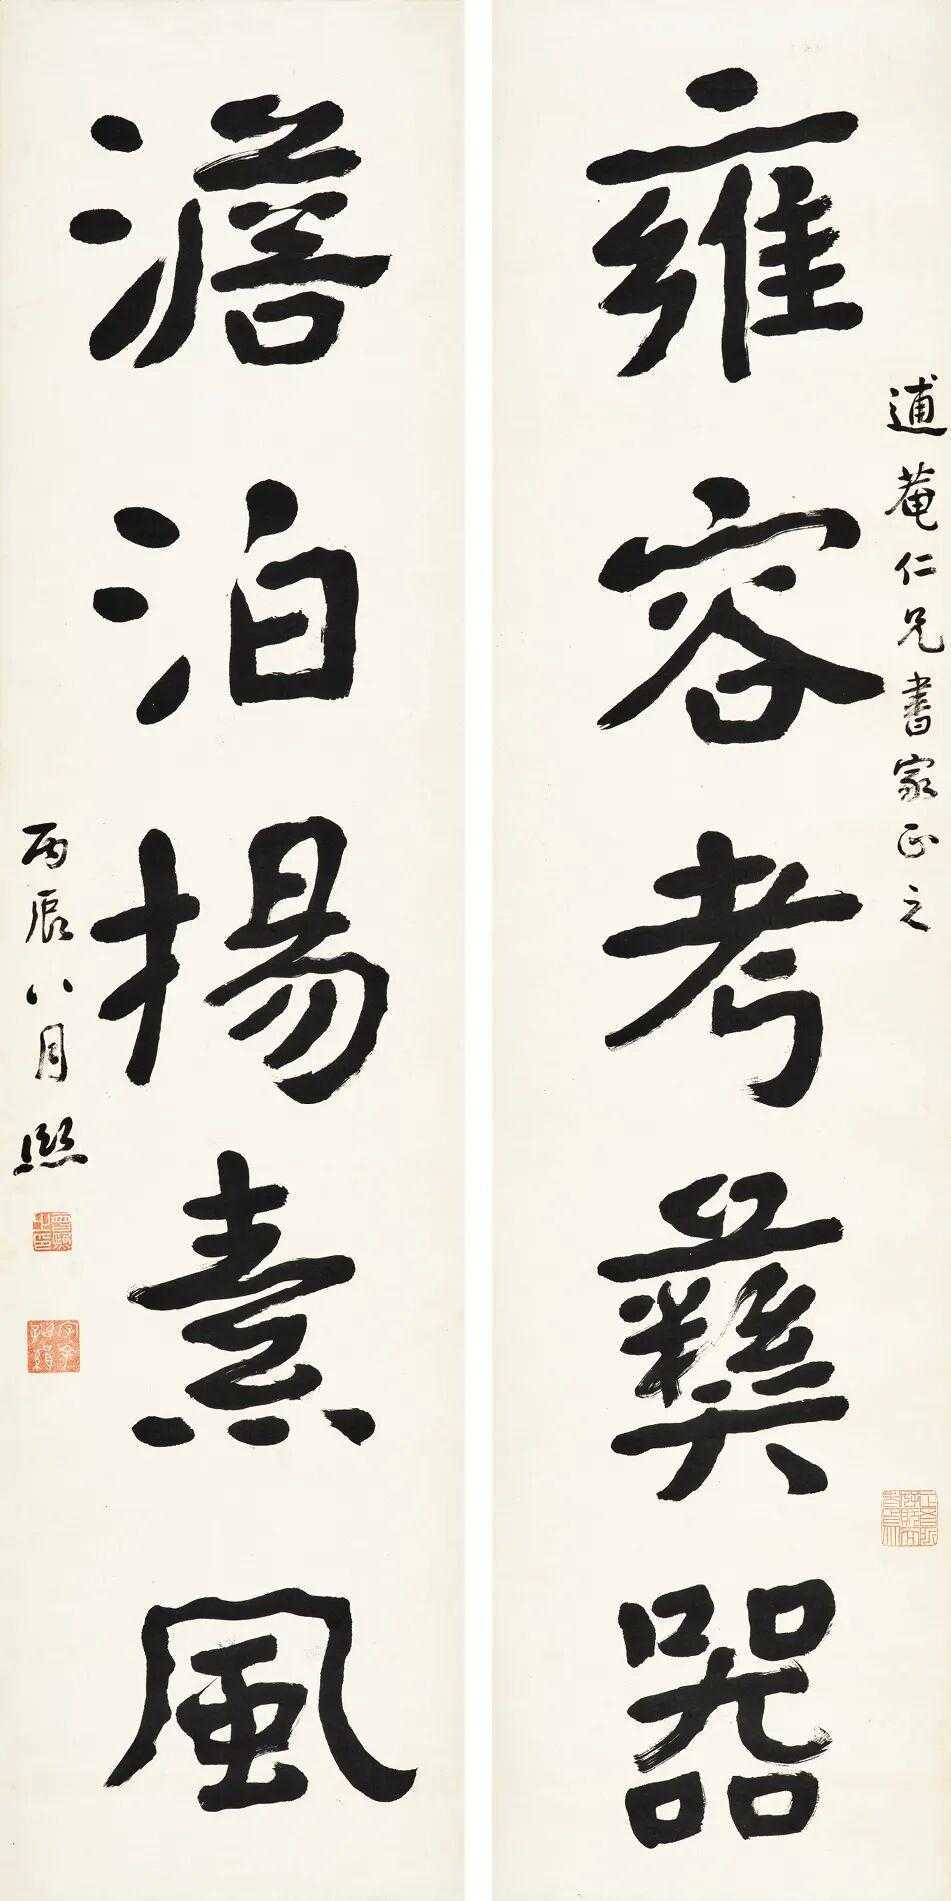 逋菴仁兄書家正之
雍容考彝器
澹泊揚素風
丙辰八月熙